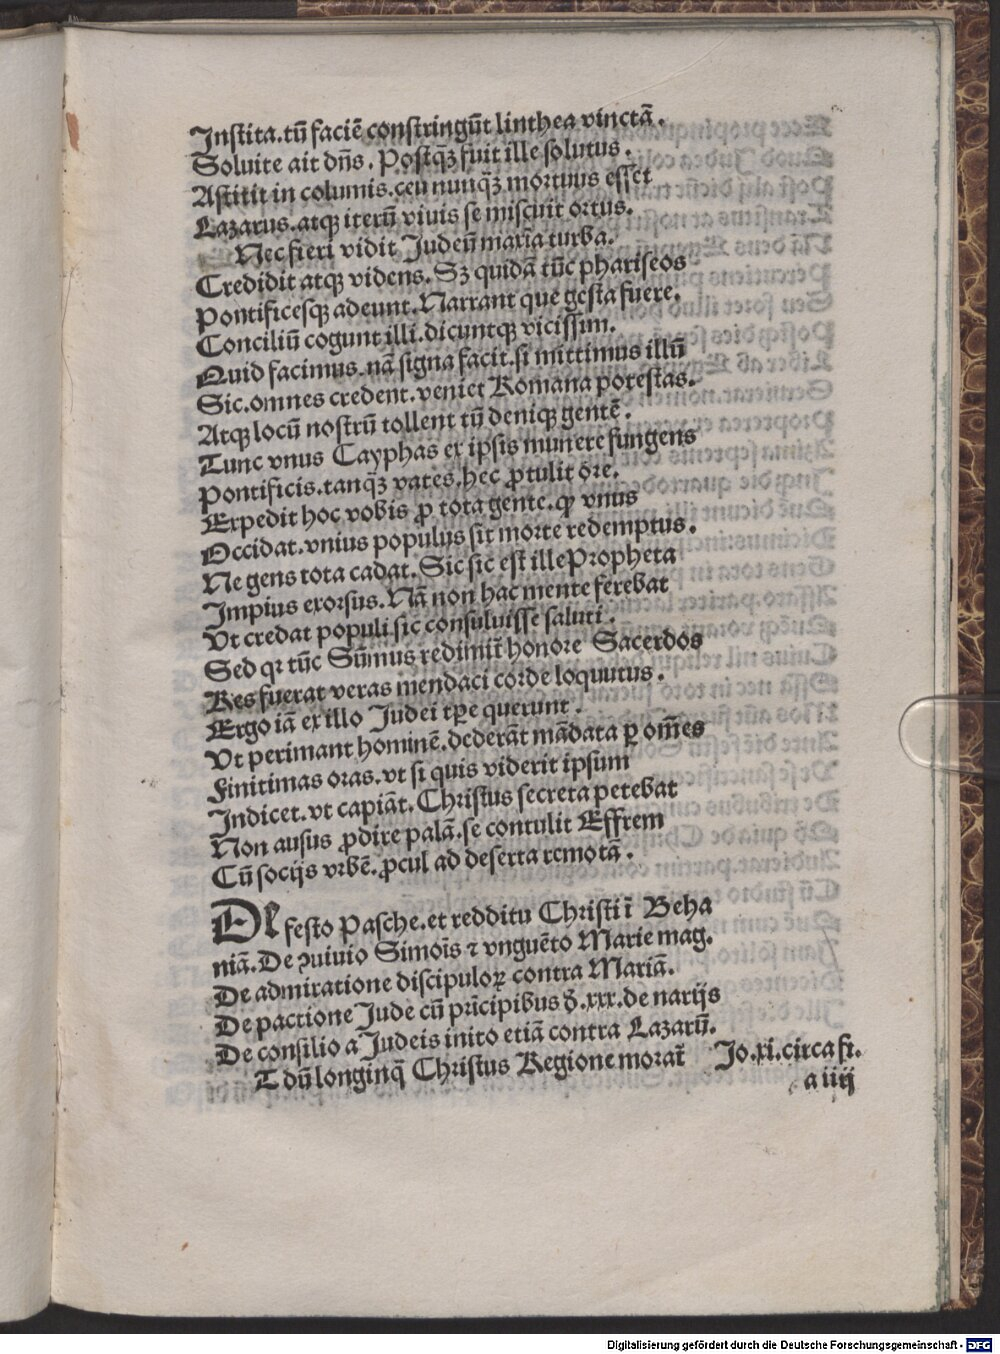 Instita.tū faciē constringūt linthea vinctā.
Soluite ait dn̄s. Postqꝫ fuit ille solutus.
Astitit in columis.ceu nunqꝫ mortuus eſſet
Lazarus.atqꝫ iterū viuis se miscuit ortus.
Nec fieri vidit Judeū maria turba.
Credidit atqꝫ videns. Sꝫ quidā tūc phariseos
Pontificesqꝫ adeunt. Narrant que gesta fuere.
Conciliū cogunt illi.dicuntqꝫ vicissim.
Quid facimus.nā signa facit.si mittimus illū
Sic.omnes credent.veniet Romana potestas.
Atqꝫ locū nostrū tollent tū deniqꝫ gentē.
Tunc vnus Cayphas ex ipsis munere fungens
Pontificis.tanqꝫ vates.hec ꝓtulit ore.
Expedit hoc vobis ꝓ tota gente.ꝙ vnus
Occidat.vnius populus sit morte redemptus.
Ne gens tota cadat. Sic sic est ille Propheta
Impius exorsus. Nā non hac mente ferebat
Vt credat populi sic consuluisse saluti.
Sed qꝛ tūc Sūmus redimit̄ honore Sacerdos
Res fuerat veras mendaci corde loquutus.
Ergo iā ex illo Judei tꝑe querunt.
Vt perimant hominē.dederāt mādata ꝑ om̄es
Finitimas oras.vt si quis viderit ipsum
Indicet.vt capiāt. Christus secreta petebat
Non ausus ꝓdire palā.se contulit Effrem
Cū socijs vrbē.ꝓcul ad deserta remotā.
DE festo Pasche.et redditu Christi ī Betha
niā. De ꝯuiuio Simoīs ⁊ vnguēto Marie mag.
De admiratione discipuloꝝ contra Mariā.
De pactione Jude cū prīcipibus ð.xxx.de narijs
De consilio a Judeis inito etiā contra Lazarū.
T dū longinq̄ Christus Regione morat̄ Jo.xi.circa fi.
a iiij
Digitalisierung gefördert durch die Deutsche Forschungsgemeinschaft - DFG